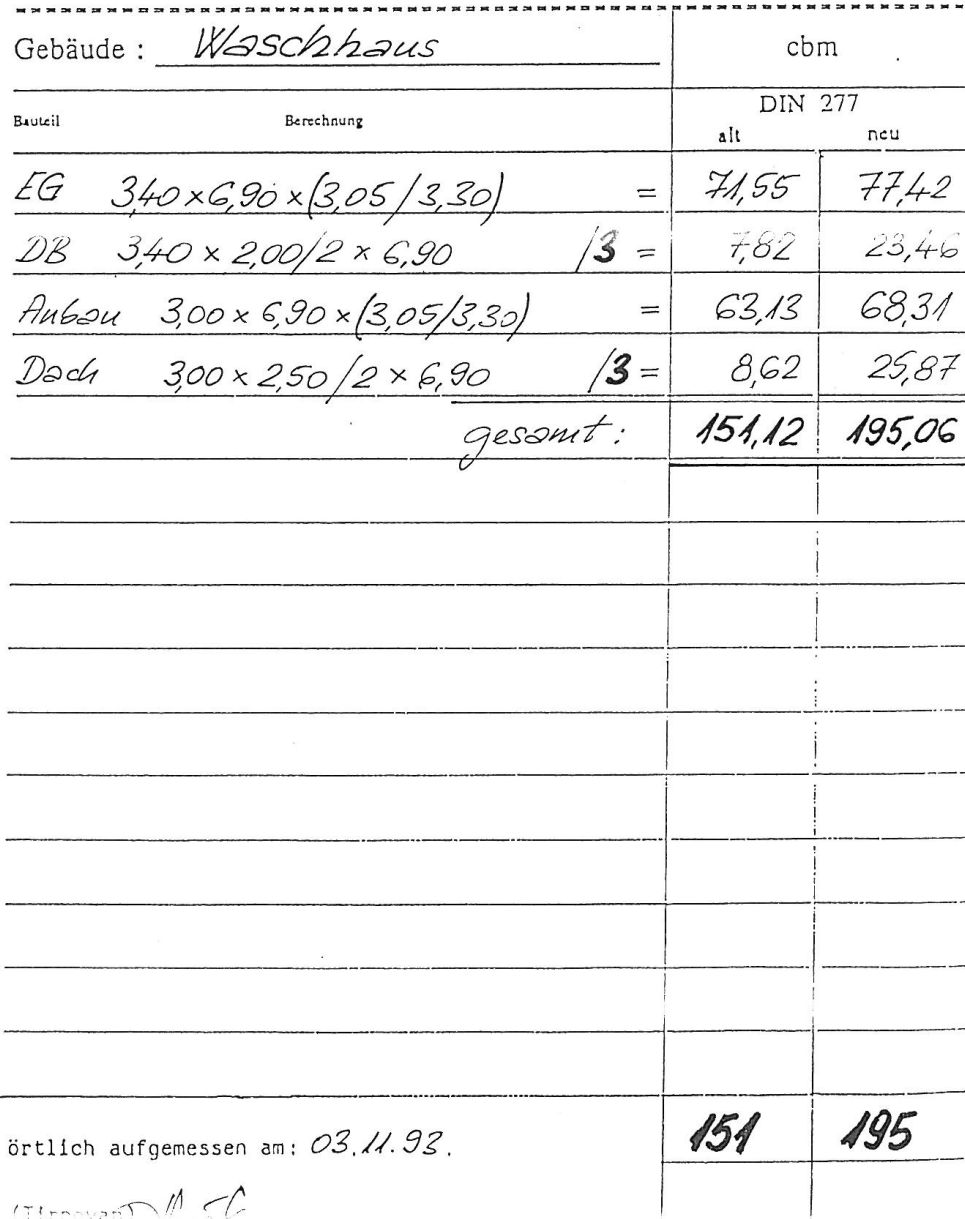 Gebäude : Waschhaus cbm
DIN 277
Bauteil Berechnung alt neu
EG 3,40 x 6,90 x (3,05 / 3,30) = 71,55 77,42
DB 3,40 x 2,00/2 x 6,90 /3 = 7,82 23,46
Anbau 3,00 x 6,90 x (3,05/3,30) = 63,13 68,31
Dach 3,00 x 2,50 /2 x 6,90 /3 = 8,62 25,87
gesamt : 151,12 195,06
151 195
örtlich aufgemessen am: 03.11.93.